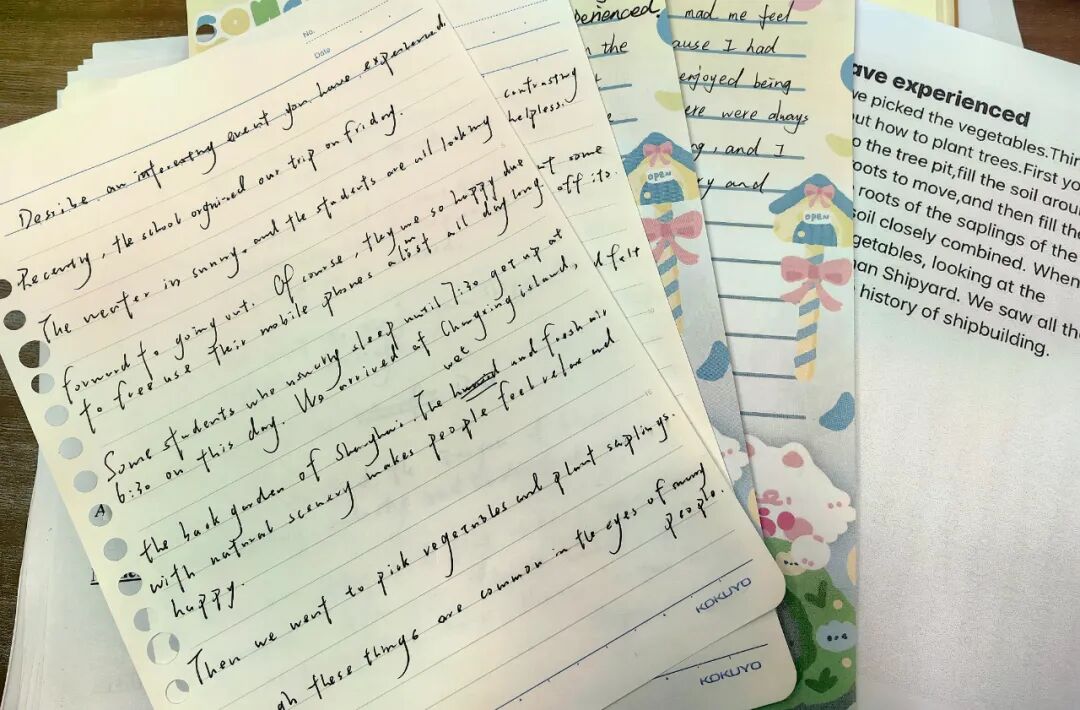 No.
Date
Desribe an interesting event you have experienced
Recently, the school orgnized our trip on friday.
The weater in sunny, and the students are all looking
forward to going out. Of course, they me so happy due
to free use their mobile phones alost all day long.
Some students who usuarry sleep until 7:30 get up at
6:30 on this day. We arrived at Chongxing island,
the back garden of Shanghai. The wet and fresh air
with natural scenery makes people feel relaxe and
happy.
Then we went to pick vegetables and plant saplings.
gh these things are common in the eyes of many
people.
KOKUYO
contrasting
helpless.
some
off its
d felt
KOKUYO
perienced.
n the
mad me feel
ause I had
enjoyed being
ere were always
g, and I
ry and
OPEN
OPEN
ave experienced
ve picked the vegetables.Thir
ut how to plant trees.First yo
o the tree pit,fill the soil arou
oots to move,and then fill the
roots of the saplings of the
soil closely combined. When
getables, looking at the
nan Shipyard. We saw all th
history of shipbuilding.